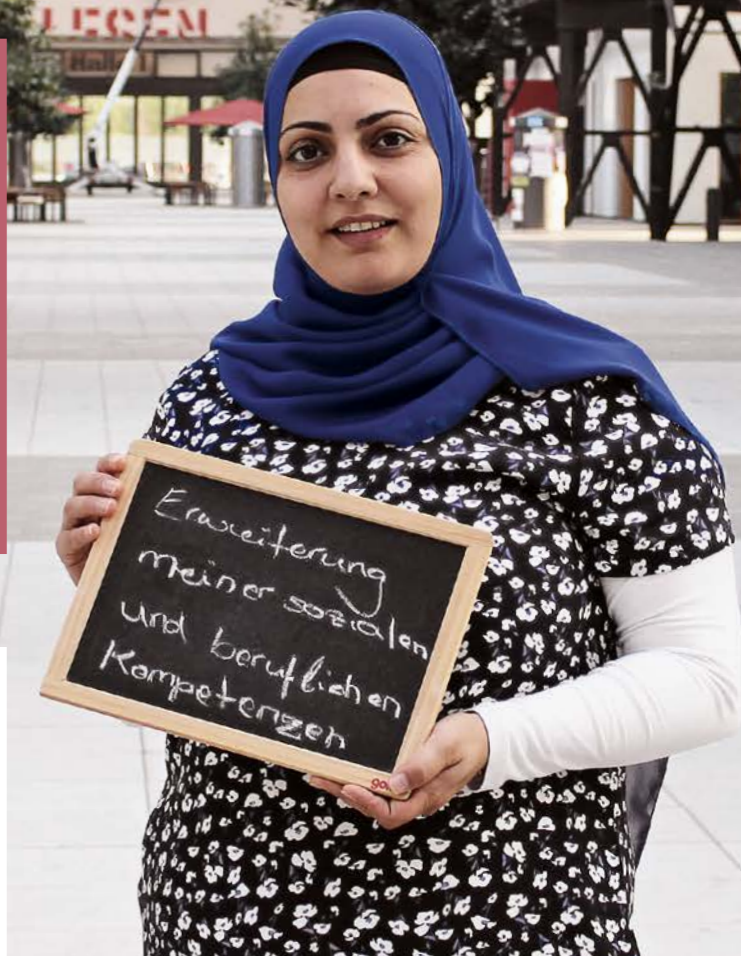 Erweiterung
meiner sozialen
und beruflichen
Kompetenzen